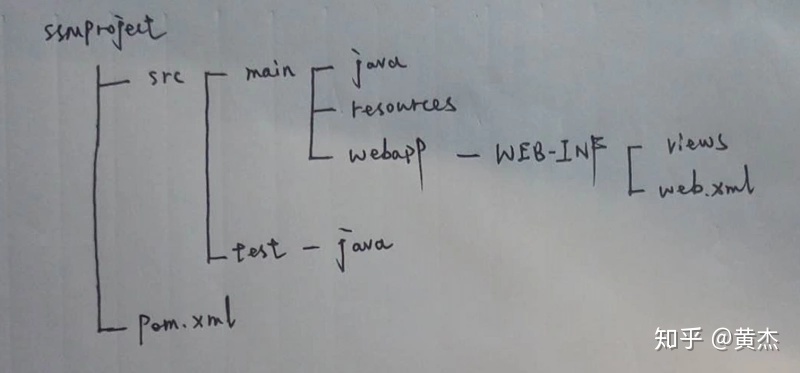 ssmproject
src main java
resources
webapp - WEB-INF views
web.xml
test - java
pom.xml
知乎 @黄杰